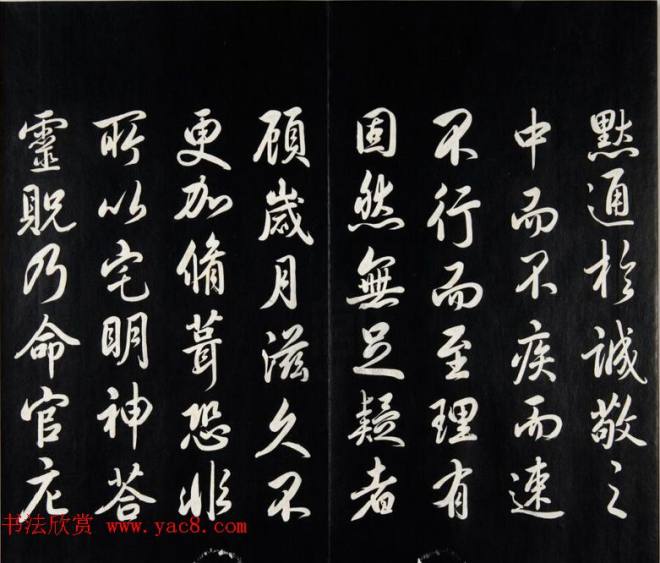 黙通於誠敬之
中而不疾而速
不行而至理有
固然無足疑者
顧歲月滋久不
更加脩葺恐非
所以宅明神荅
靈貺乃命官庀
书法欣赏 www.yac8.com